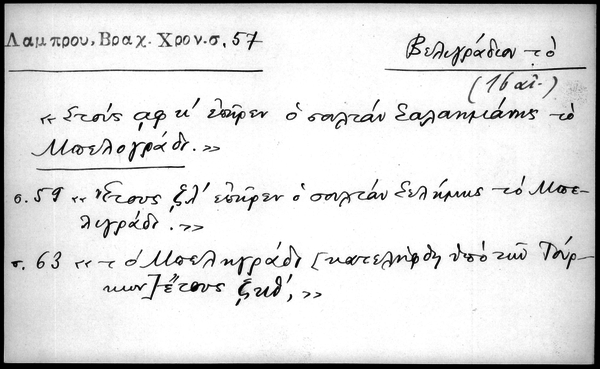 Λαμπρου, Βραχ. Χρον. σ, 57
Βελιγράδιον τὸ
(16 αἰ.)
« Ἔτους αφκ' ἐπῆρεν ὁ σουλτάν Σαλαημάνης τὸ
Μπελογράδι. »
σ. 59 « Ἔτους ζλ' ἐπῆρεν ὁ σουλτάν Σελήμης τὸ Μπε-
λιγράδι. »
σ. 63 « τὸ Μπεληγράδι [κατελήφθη ὑπὸ τῶν Τούρ-
κων] ἔτους ζκθ', »